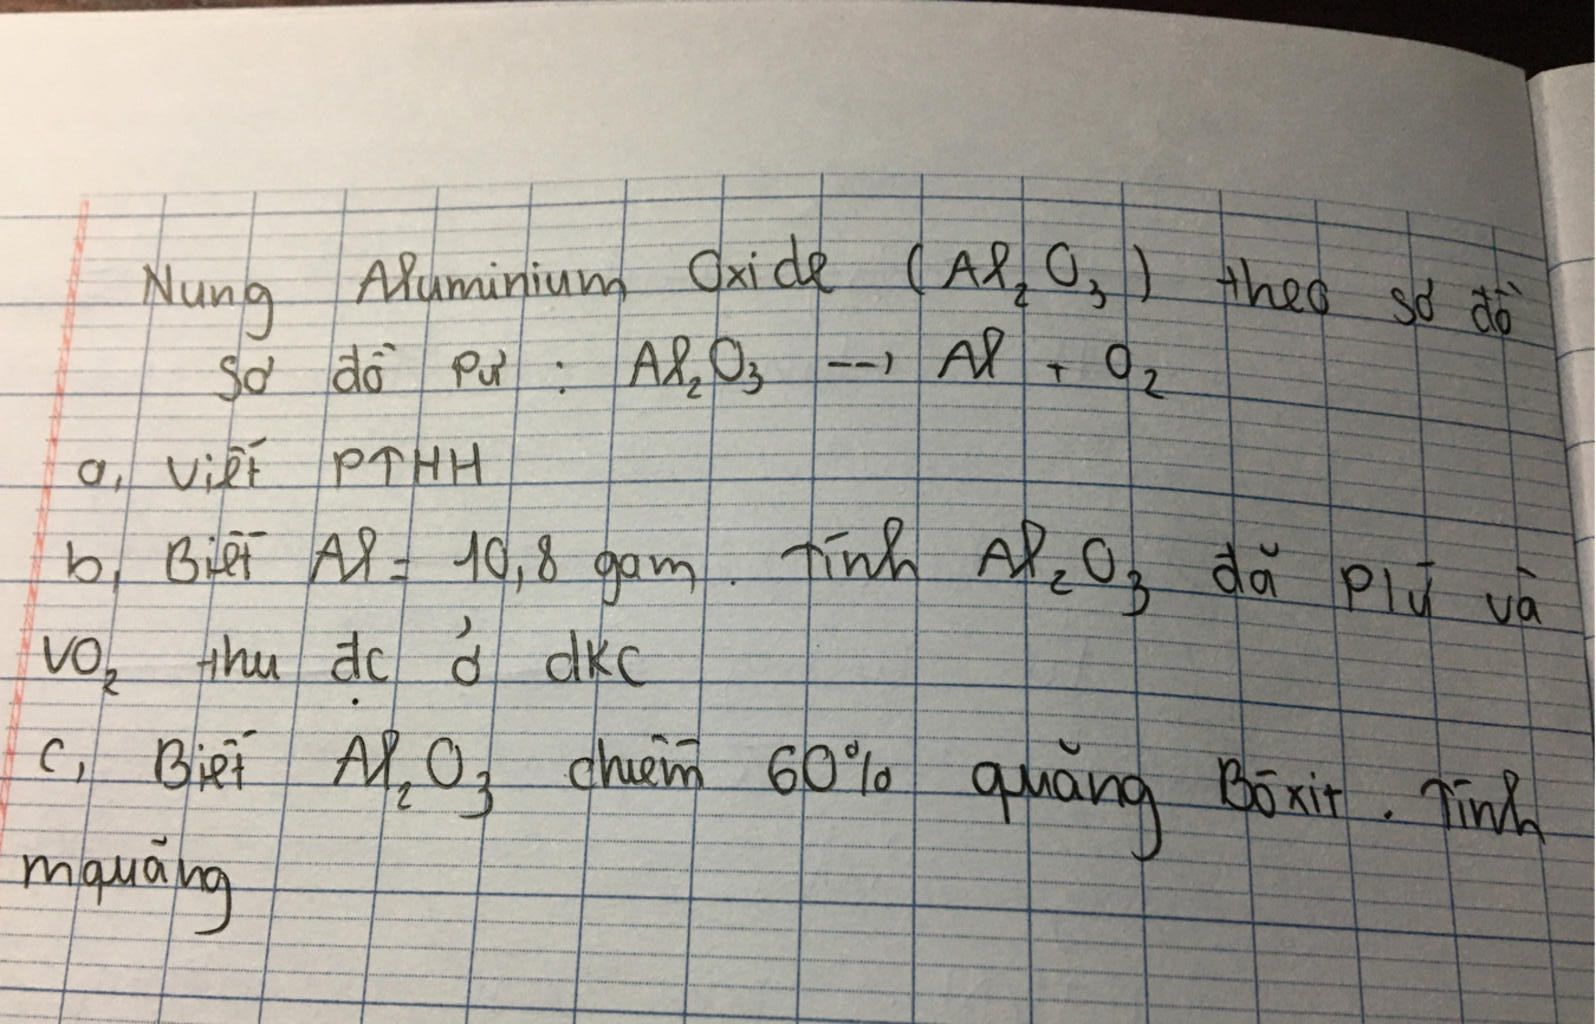 Nung Aluminium Oxide (Al₂O₃) theo sơ đồ
sơ đồ pư : Al₂O₃ --→ Al + O₂
a, Viết PTHH
b, Biết Al = 10,8 gam. Tính Al₂O₃ đã pứ và
VO₂ thu đc ở đkc
c, Biết Al₂O₃ chiếm 60% quặng Bôxit. Tính
mquặng